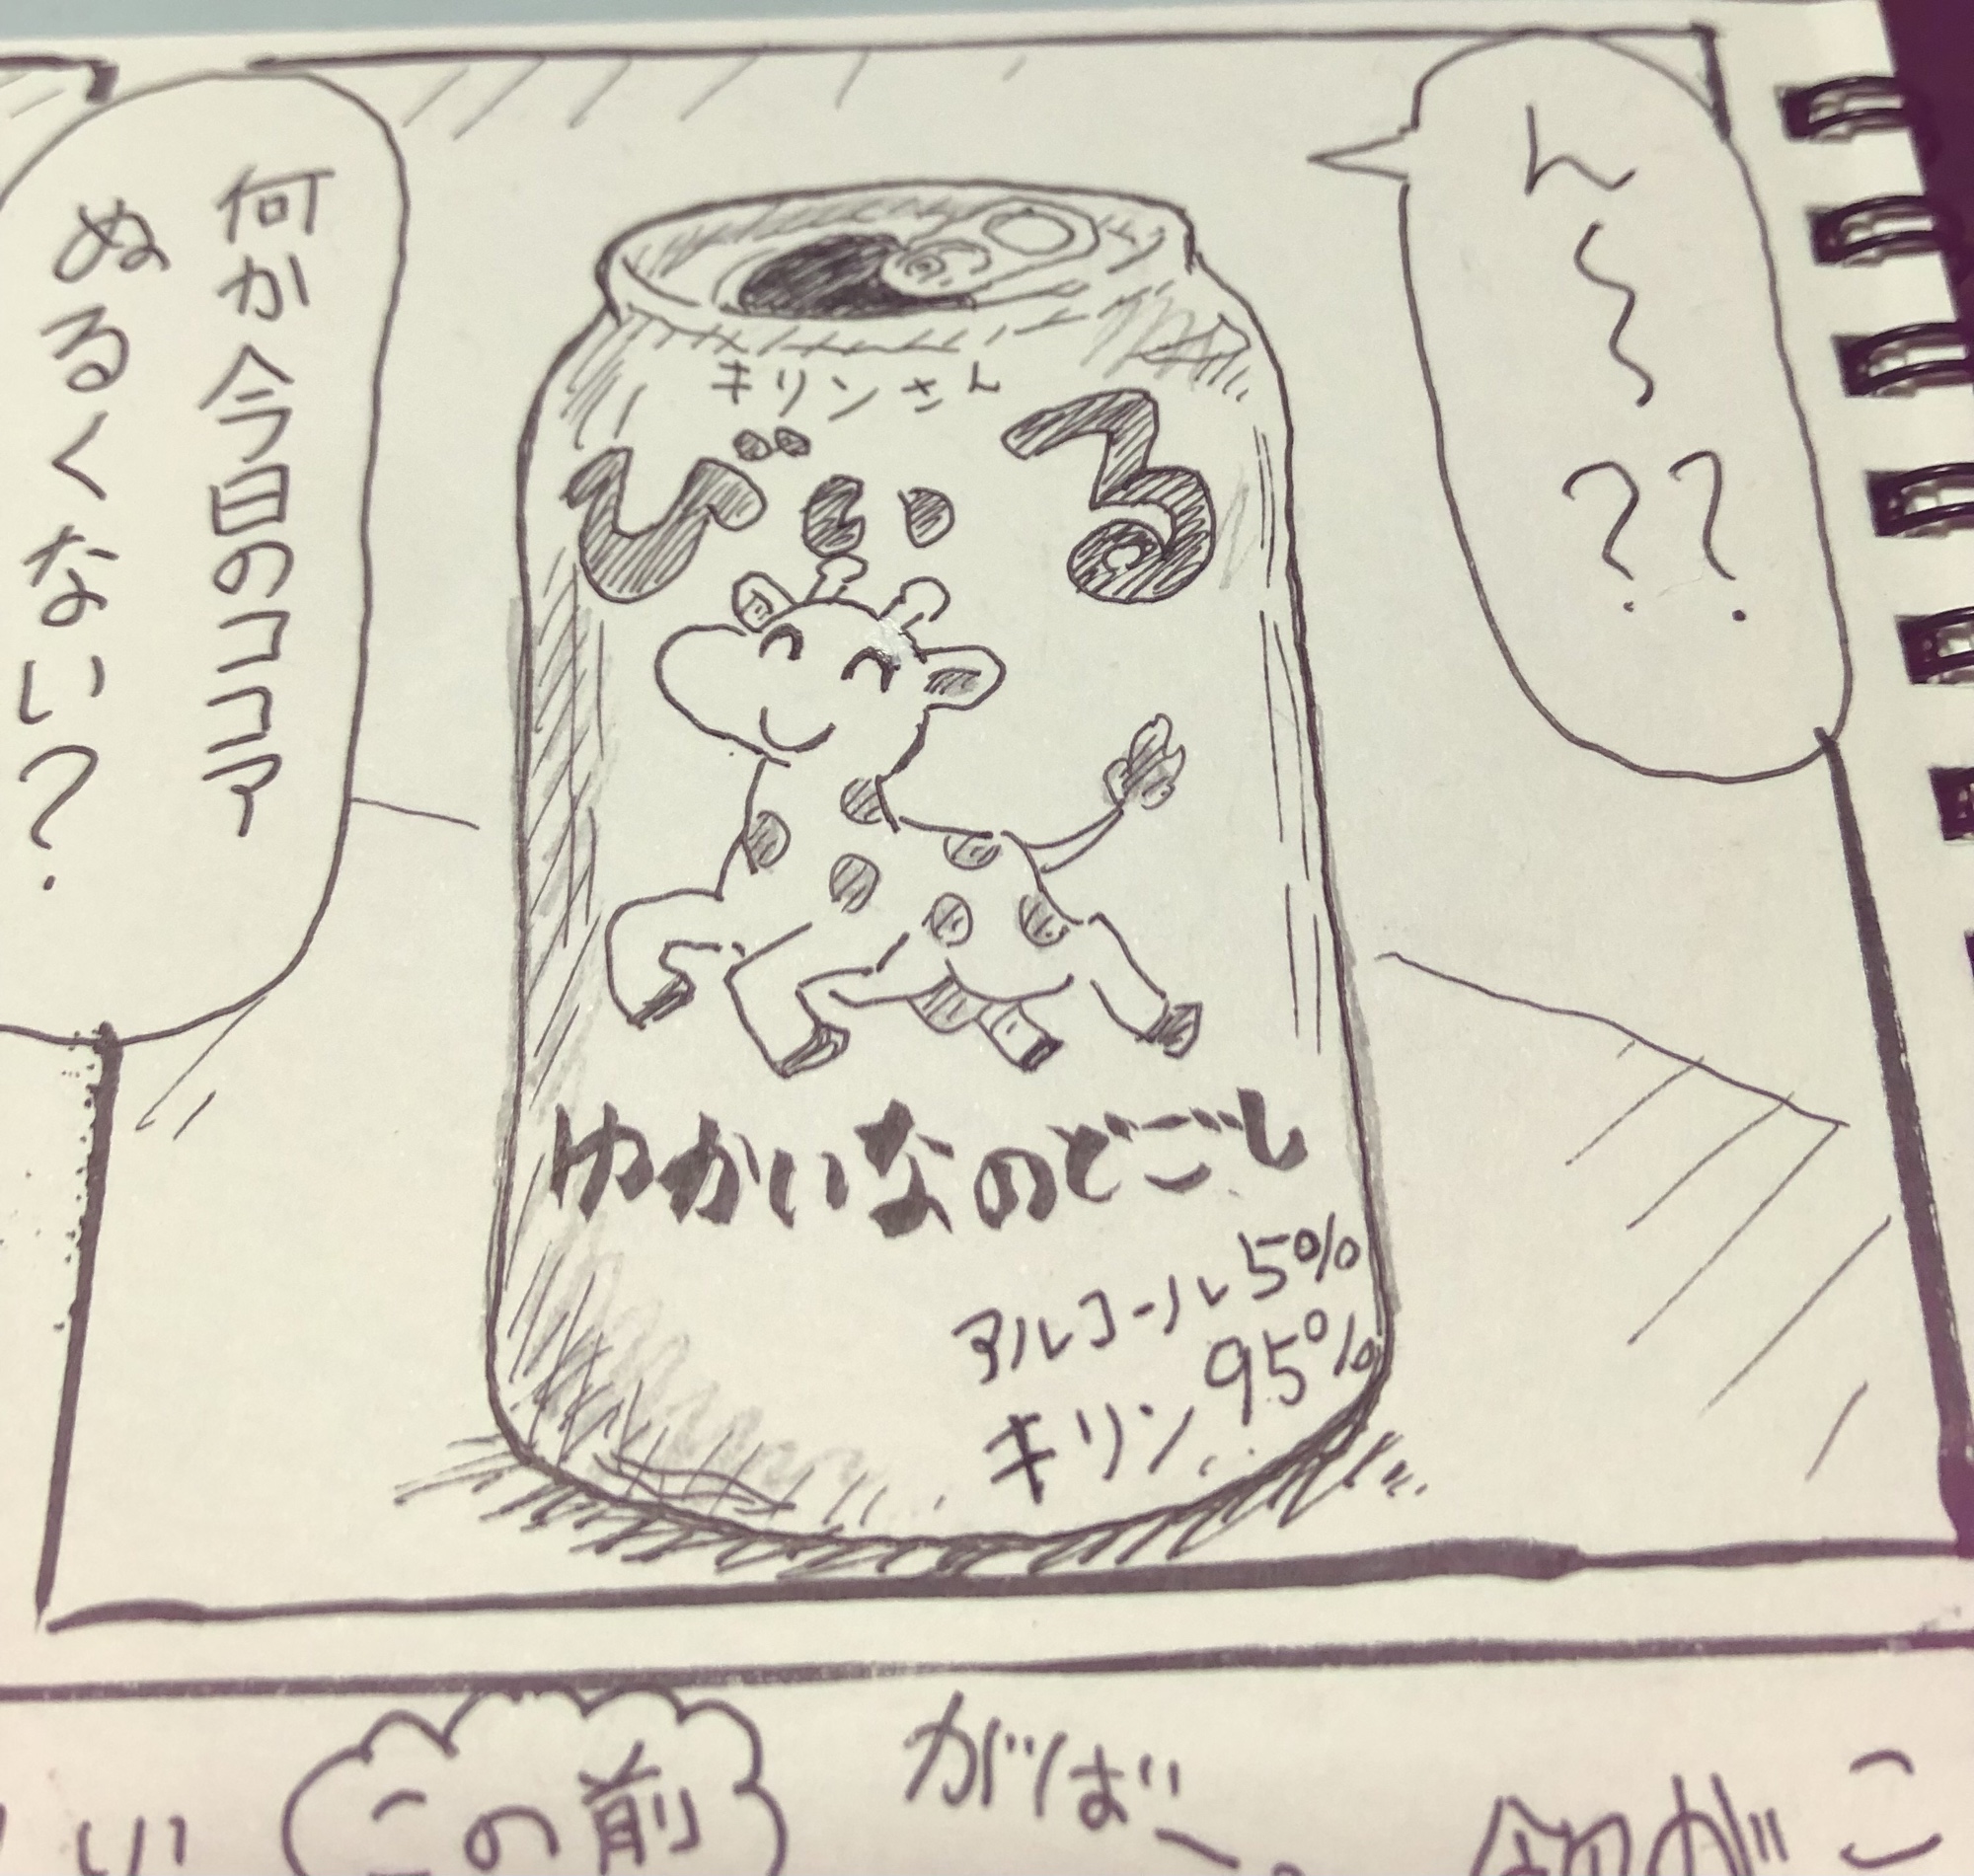 ん〜??
キリンさん
びいる
ゆかいなのどごし
アルコール5%
キリン95%
何か今日のココア
ぬるくない?
がば〜
この前